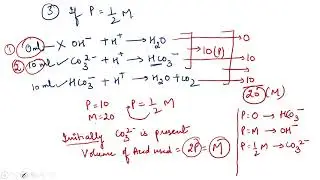 ③ If P = 1/2 M
① 0ml — X OH⁻ + H⁺ → H₂O → 0
② 10ml CO₃²⁻ + H⁺ → HCO₃⁻ → 10(P) → 10
10ml HCO₃⁻ + H⁺ → H₂O + CO₂ → 10
20 (M)
P = 10 P = 1/2 M
M = 20
Initially CO₃²⁻ is present
Volume of Acid used = 2P = M
P = 0 → HCO₃⁻
P = M → OH⁻
P = 1/2 M → CO₃²⁻